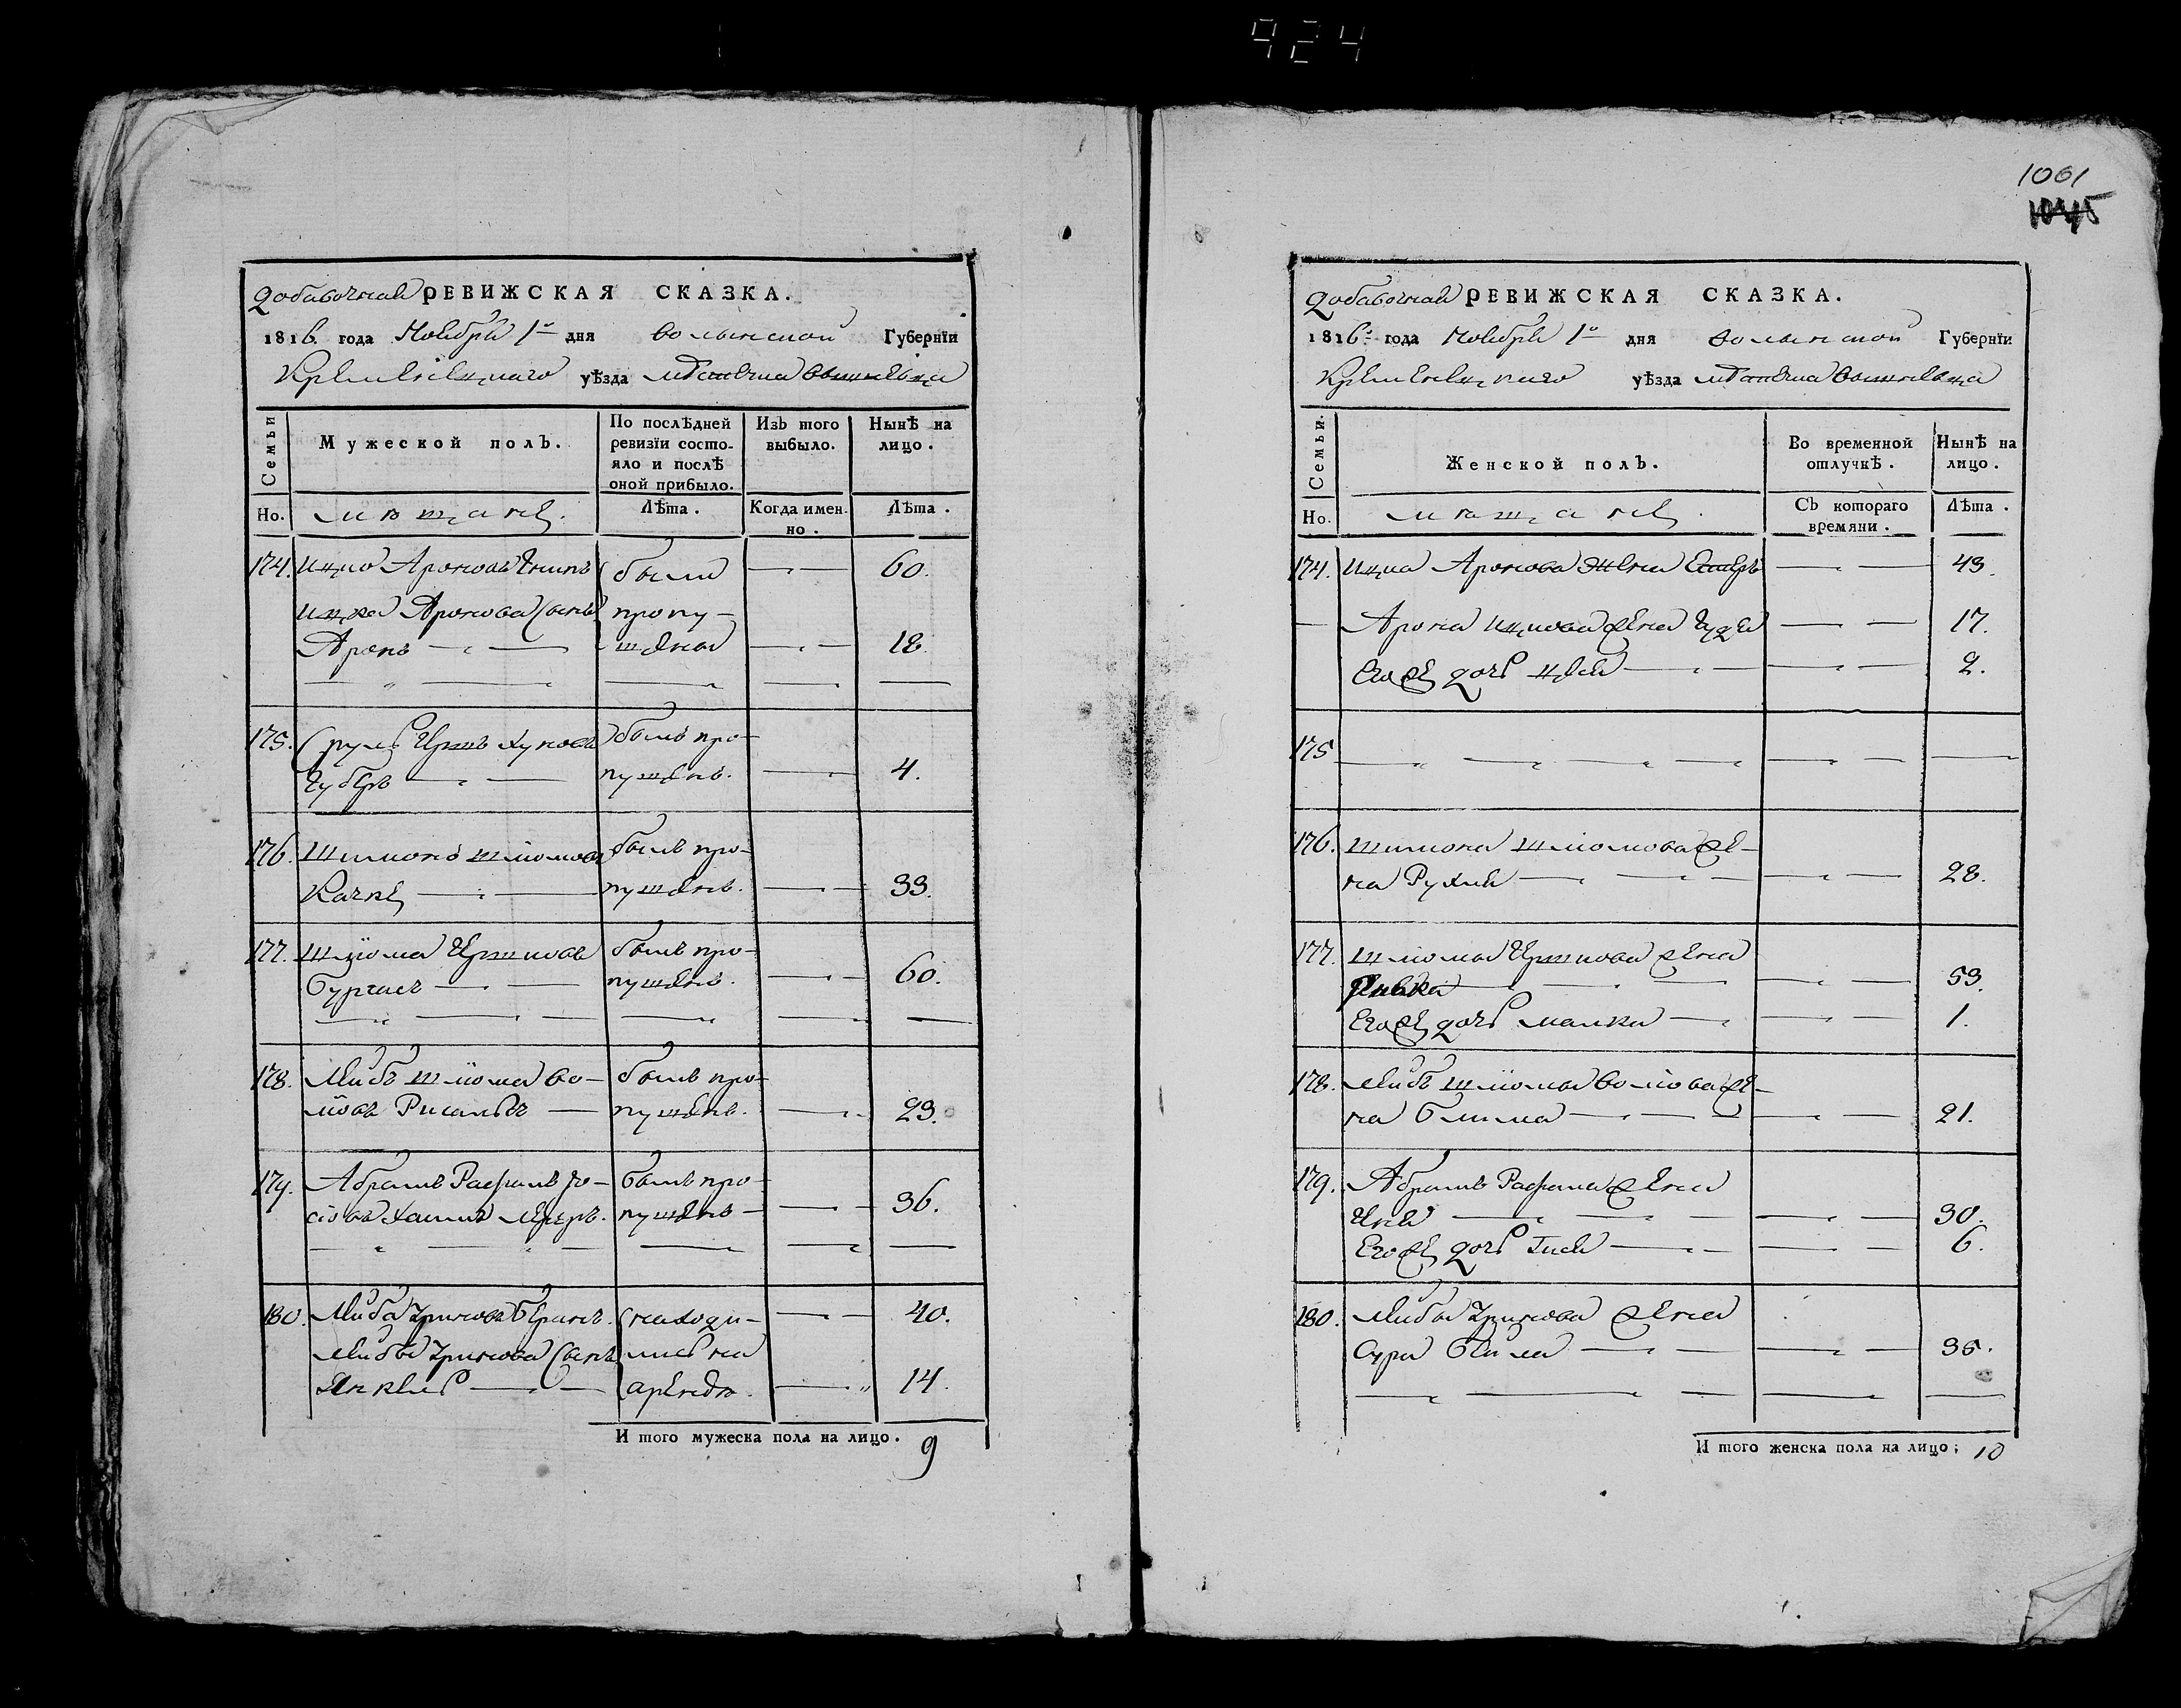 924
добавочная РЕВИЖСКАЯ СКАЗКА.
1816. года Ноября 1го дня волынской Губернїи
Кременецкаго уѣзда местечка вышневца
Семьи
Мужеской полъ.
По послѣдней ревизїи состояло и послѣ оной прибыло.
Изъ того выбыло.
Нынѣ на лицо.
Но.
мещане
Лѣта.
Когда именно.
Лѣта.
174. Ицко Ароновъ были — 60.
Ицка Аронова сынъ пропу-
Аронъ — щены — 18.
175. Сруль Гершъ былъ про-
пущенъ. — 4.
176. Шимонъ Шліомовъ былъ про-
пущенъ. — 33.
177. Шліома Гершковъ былъ про-
пущенъ. — 60.
178. Лейбъ Шліома Во- былъ про-
пущенъ. — 23.
179. Абрамъ Рафаилъ Іо- былъ про-
пущенъ — 36.
180. Лейба находи- — 40.
Лейбы сынъ лись на
Янкель — арендѣ. — 14.
И того мужеска пола на лицо. 9
1061
1045
добавочная РЕВИЖСКАЯ СКАЗКА.
1816го года Ноября 1го дня волынской Губернїи
Кременецкаго уѣзда местечка вышневца
Семьи.
Женской полъ.
Во временной отлучкѣ.
Нынѣ на лицо.
Но.
мещане.
Съ котораго времяни.
Лѣта.
174. Ицка Аронова жена Естеръ — 43.
— Арона Ицкова жена — 17.
Его же дочь — 2.
175
176. Шимона Шліомова же-
на Рухля — 28.
177. Шліомы Гершкова жена
Ривка — 53.
Его же дочь Малка — 1.
178. Лейбъ Шліомы Волїова же-
на Блима — 21.
179. Абрамъ Рафаила жена
— 30.
Его же дочь Гися — 6.
180. Лейбы жена
Сура Бейла — 35.
И того женска пола на лицо; 10